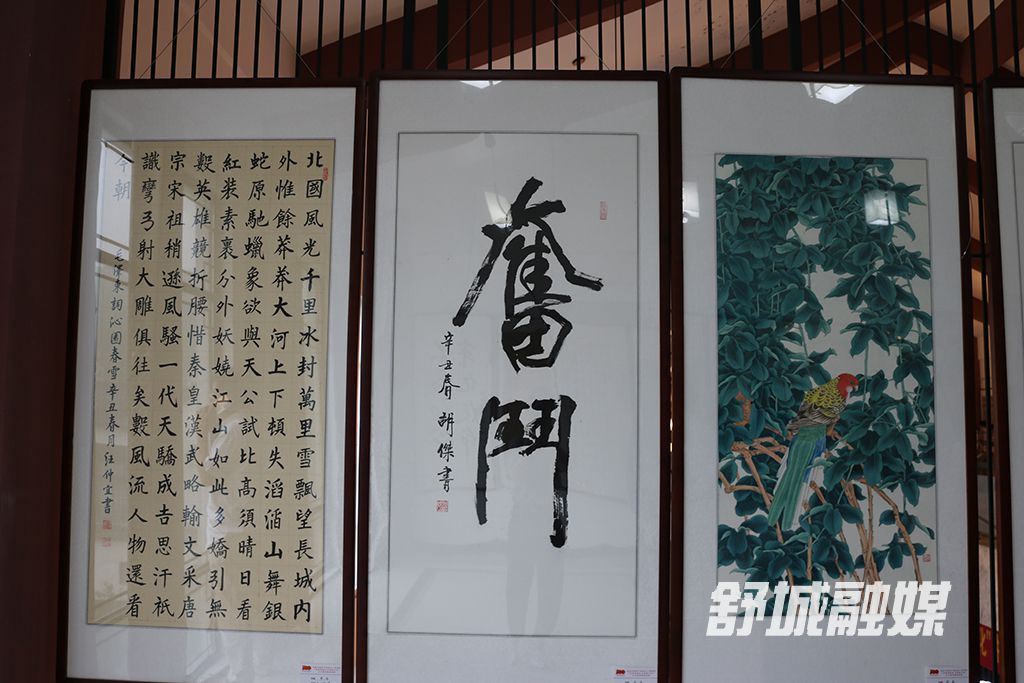 北國風光千里冰封萬里雪飄望長城內
外惟餘莽莽大河上下頓失滔滔山舞銀
蛇原馳蠟象欲與天公試比高須晴日看
紅装素裹分外妖嬈江山如此多嬌引無
數英雄競折腰惜秦皇漢武略輸文采唐
宗宋祖稍遜風騷一代天驕成吉思汗祇
識彎弓射大雕俱往矣數風流人物還看
今朝
毛澤東詞沁園春雪辛丑春月汪仲宜書
奮鬥
辛丑春胡傑書
舒城融媒